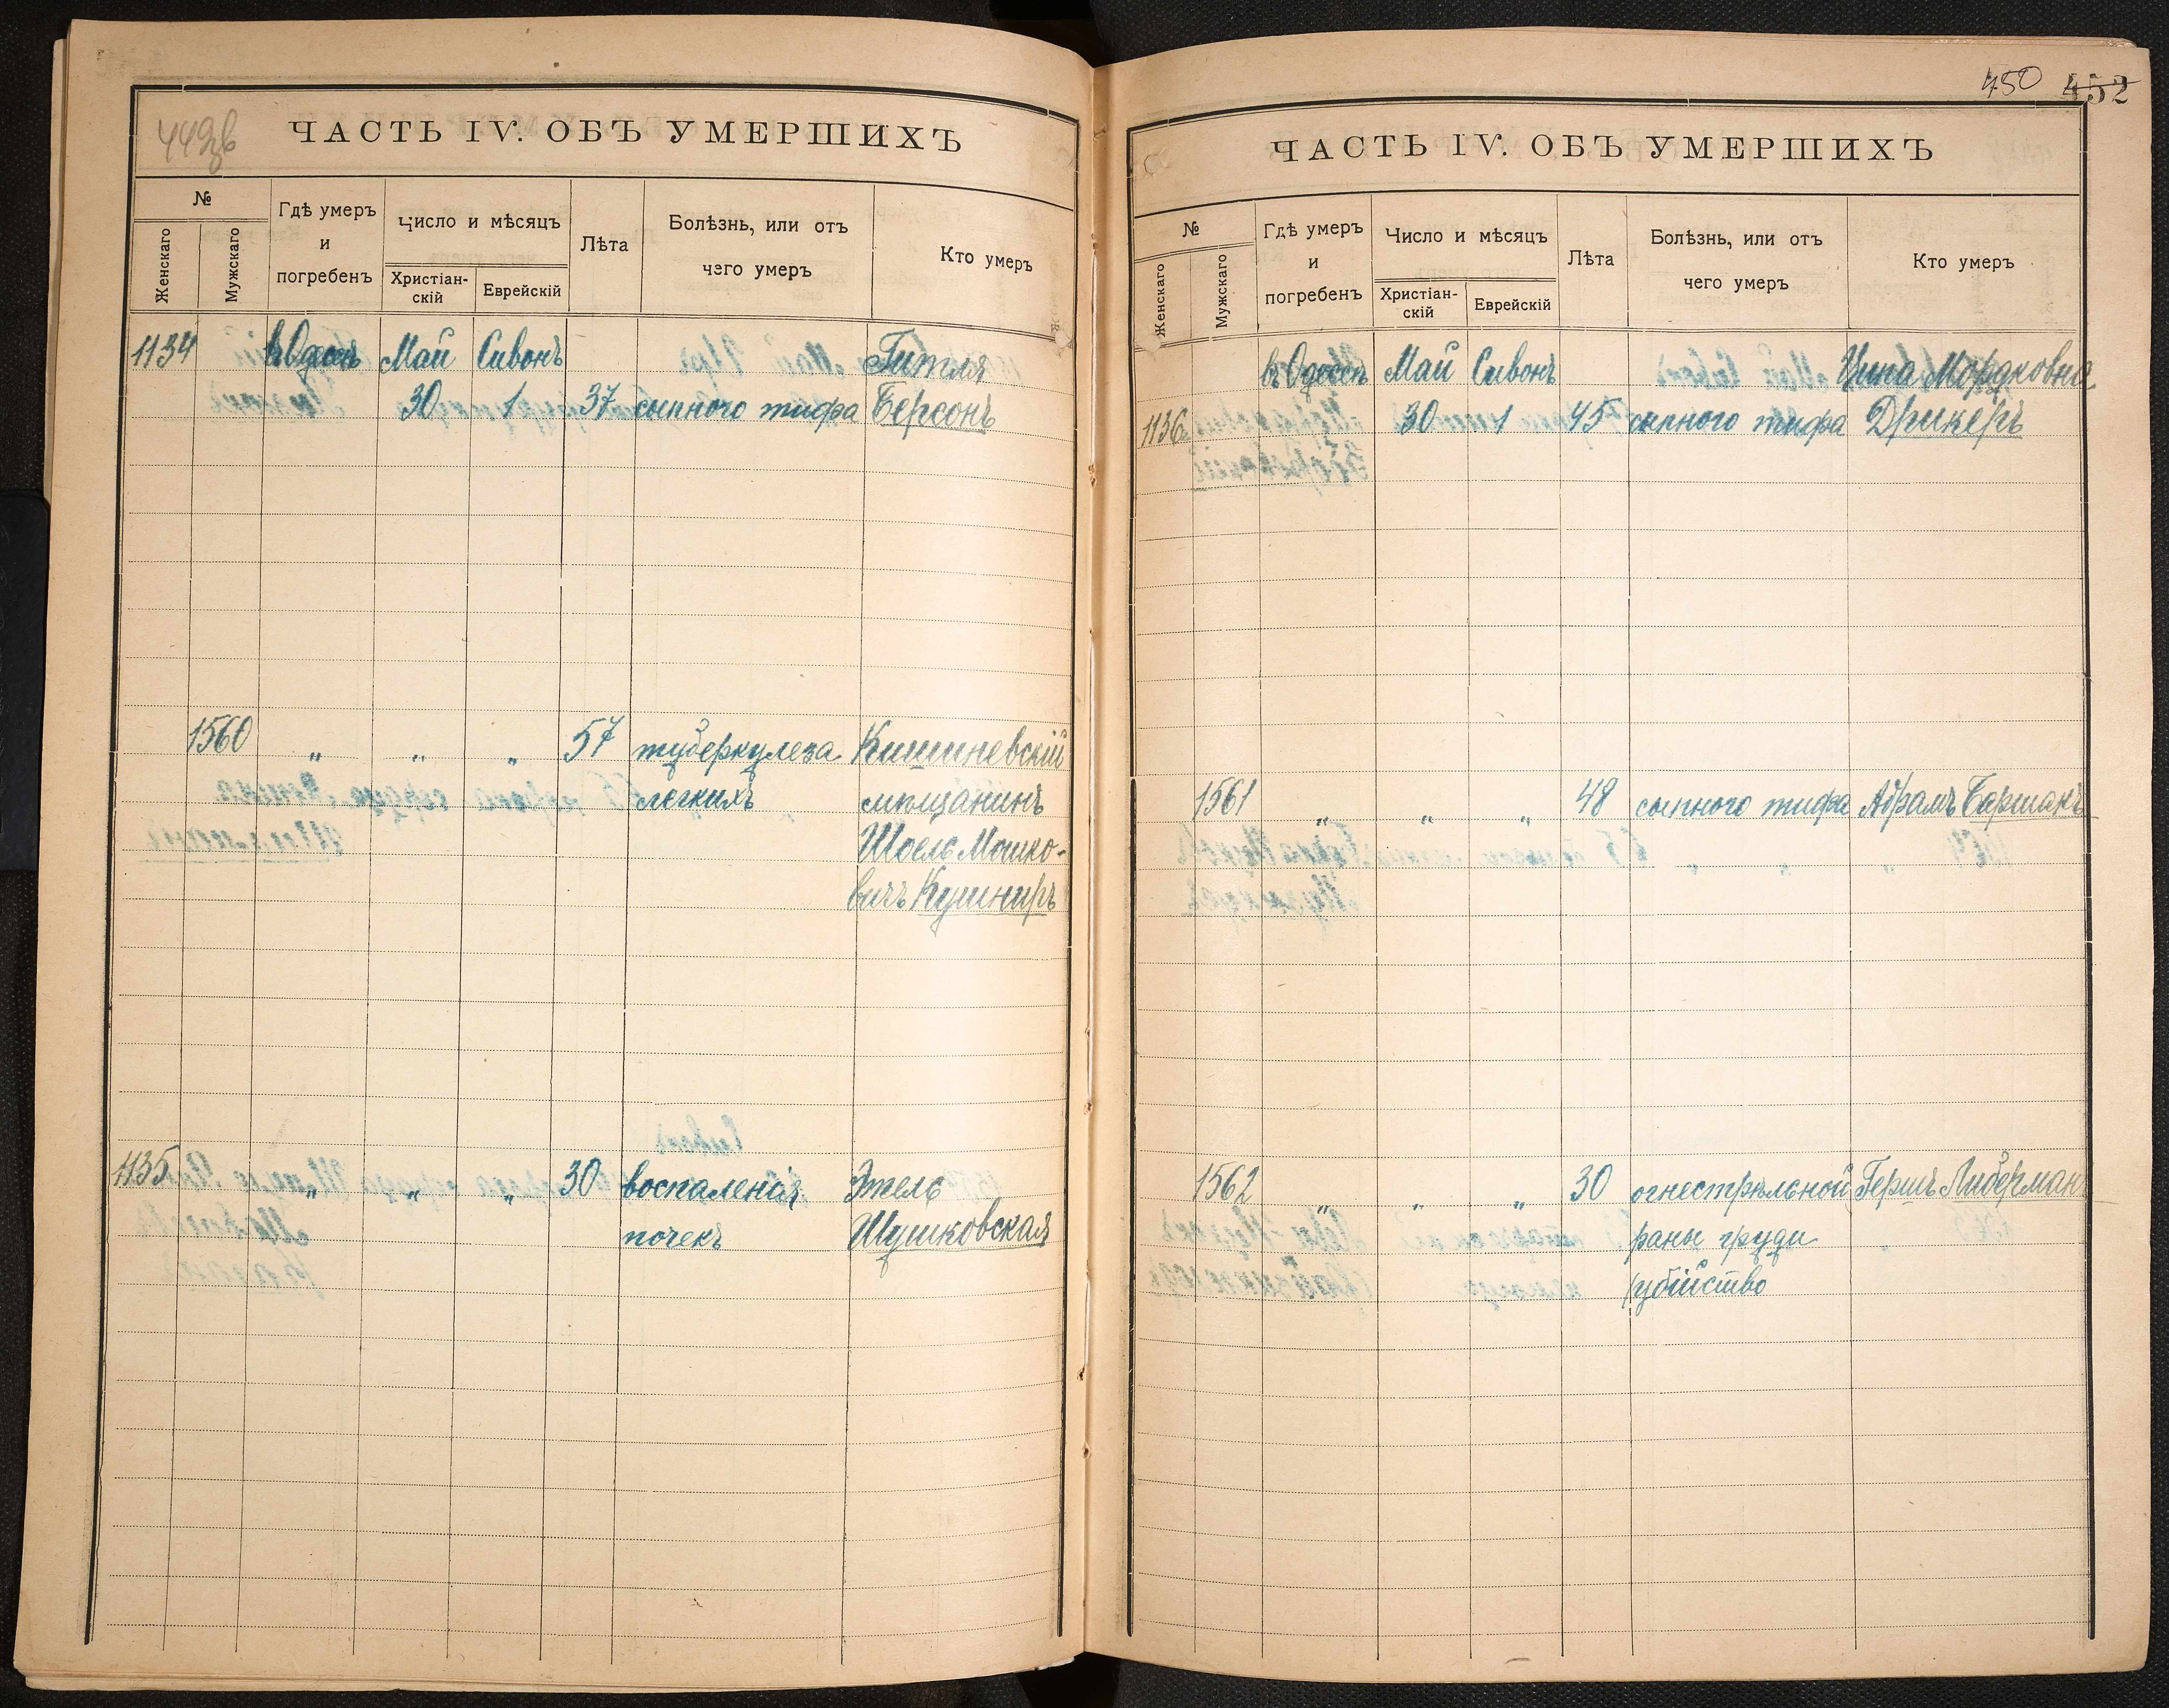 449 зв
ЧАСТЬ IV. ОБЪ УМЕРШИХЪ
№
Женскаго
Мужскаго
Гдѣ умеръ
и
погребенъ
Число и мѣсяцъ
Христіан-
скій
Еврейскій
Лѣта
Болѣзнь, или отъ
чего умеръ
Кто умеръ
1134 въ Одессѣ Май Сивонъ Гитля
30 1 37 сыпного тифа Берсонъ
1560 " " " 57 туберкулеза Кишиневскій
легкихъ мѣщанинъ
Шоель Мошко-
вичъ Кушниръ
1135 " " " 30 воспаленія Этель
почекъ Шушковская
450 452
ЧАСТЬ IV. ОБЪ УМЕРШИХЪ
№
Женскаго
Мужскаго
Гдѣ умеръ
и
погребенъ
Число и мѣсяцъ
Христіан-
скій
Еврейскій
Лѣта
Болѣзнь, или отъ
чего умеръ
Кто умеръ
въ Одессѣ Май Сивонъ Ципа Мордковна
1136 30 1 45 сыпного тифа Дрикеръ
1561 " " " 48 сыпного тифа Абрамъ Баршакъ
1562 " " " 30 огнестрѣльной Гершъ Либерман
раны груди
(убійство